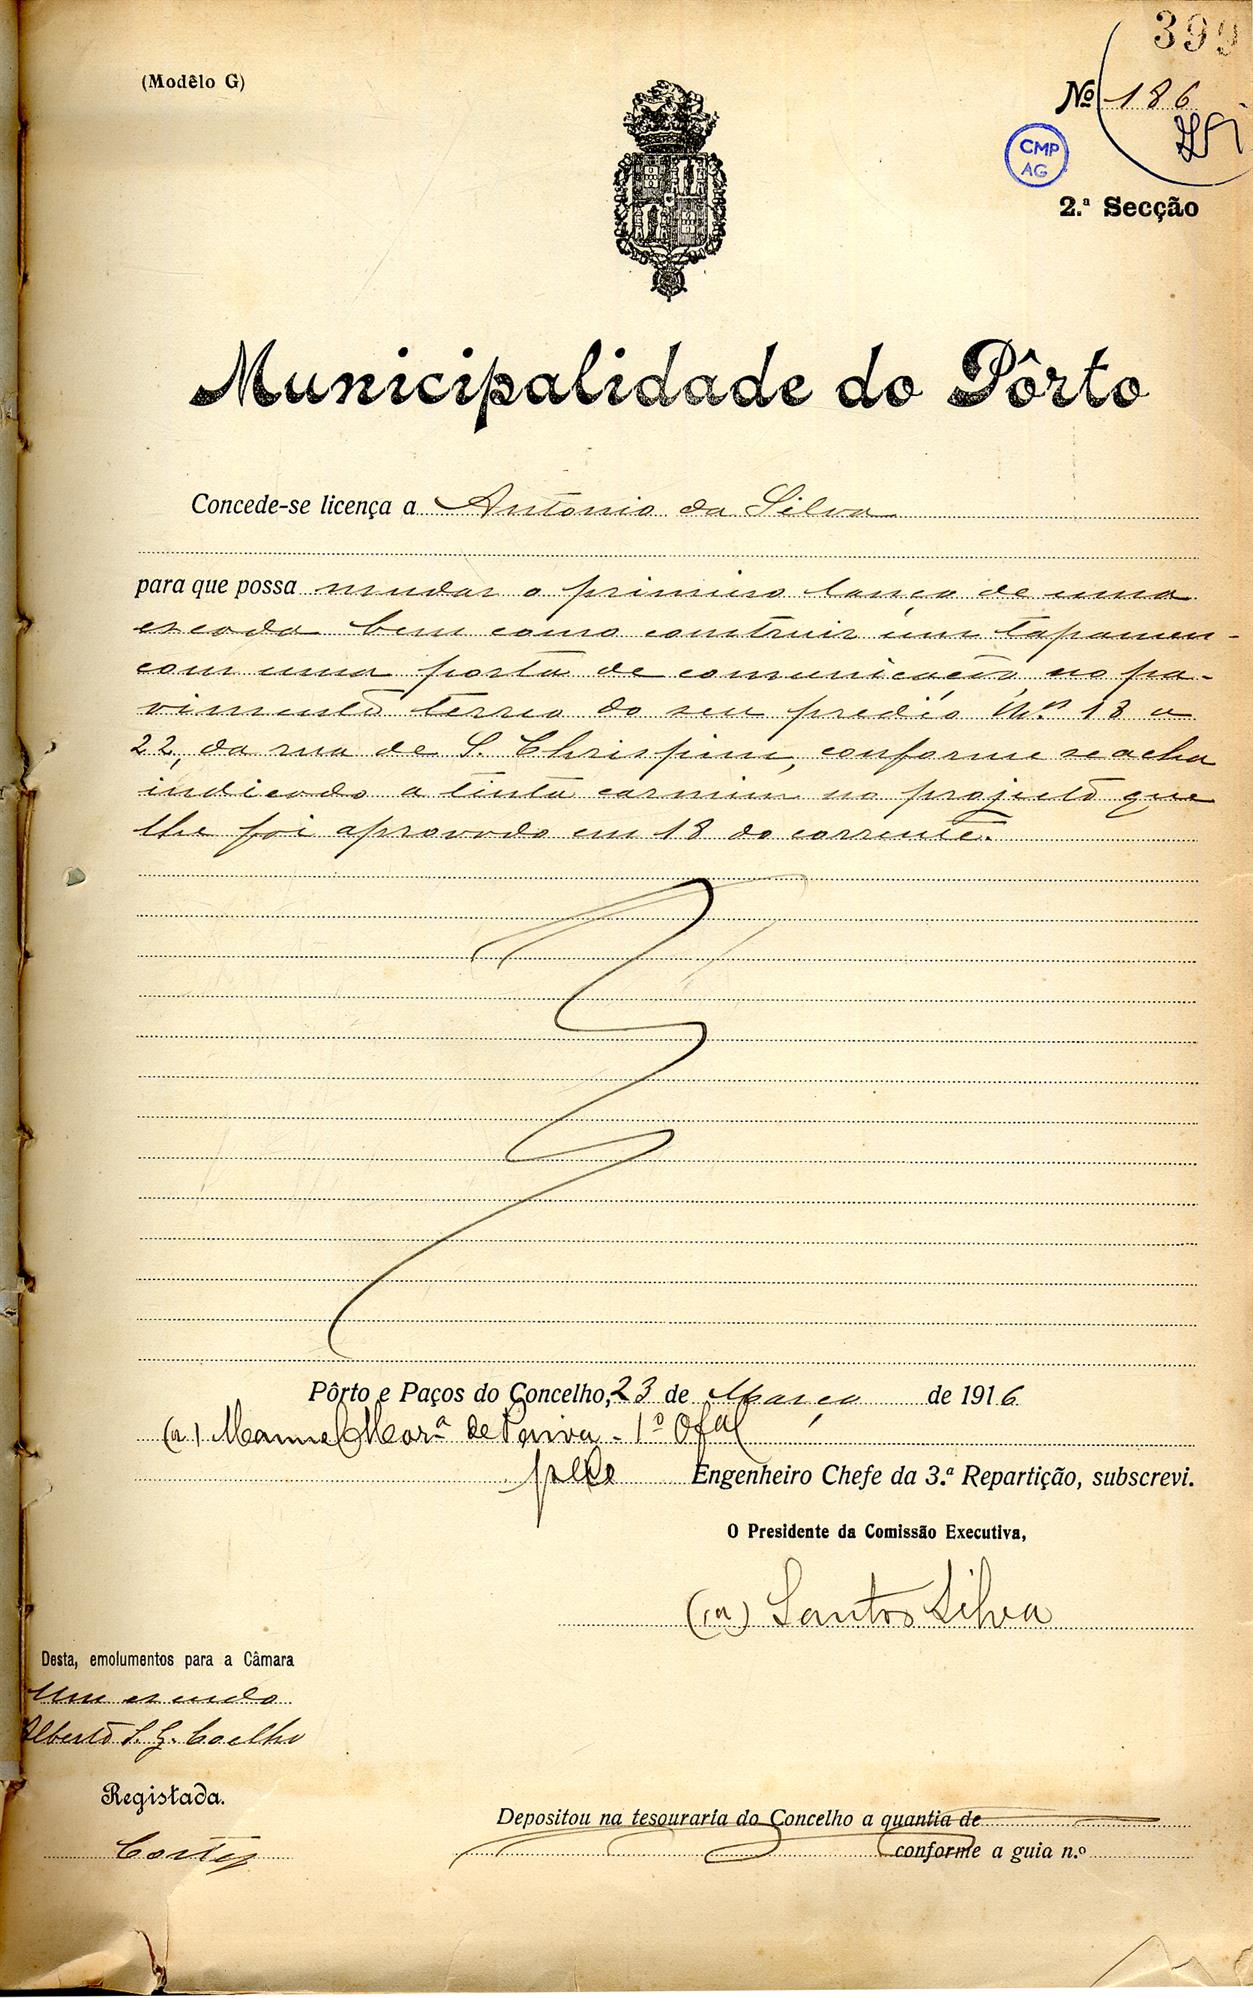 399
(Modêlo G)
Nº 186
CMP
AG
2.ª Secção
Municipalidade do Pôrto
Concede-se licença a Antonio da Silva
para que possa mudar o primeiro lanço de uma
escada bem como construir um tapamen-
com uma porta de comunicação, no pa-
vimento terreo do seu predio Nºs 18 a
22, da rua de S. Chrispim, conforme se acha
indicado a tinta carmim no projecto que
lhe foi aprovado em 18 do corrente.
Pôrto e Paços do Concelho, 23 de Março de 1916
(a) Manuel Marª de Paiva - 1º Ofal
pelo Engenheiro Chefe da 3.ª Repartição, subscrevi.
O Presidente da Comissão Executiva,
(a) Santos Silva
Desta, emolumentos para a Câmara
Um escudo
Alberto S. G. Coelho
Registada.
Cortez
Depositou na tesouraria do Concelho a quantia de
conforme a guia n.º